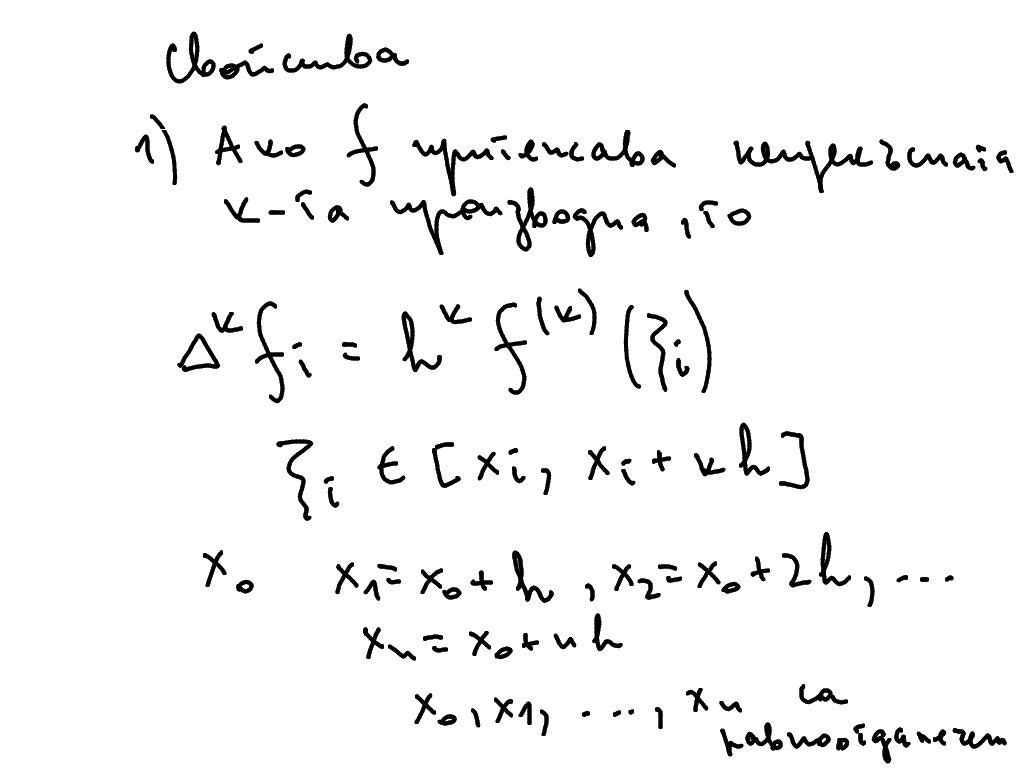 Свойства
1) Ако f притежава непрекъсната
k-та производна, то
Δ^k f_i = h^k f^(k) (ξ_i)
ξ_i ∈ [x_i, x_i + kh]
x_0 x_1 = x_0 + h, x_2 = x_0 + 2h, ...
x_n = x_0 + nh
x_0, x_1, ..., x_n са
равноотдалечени